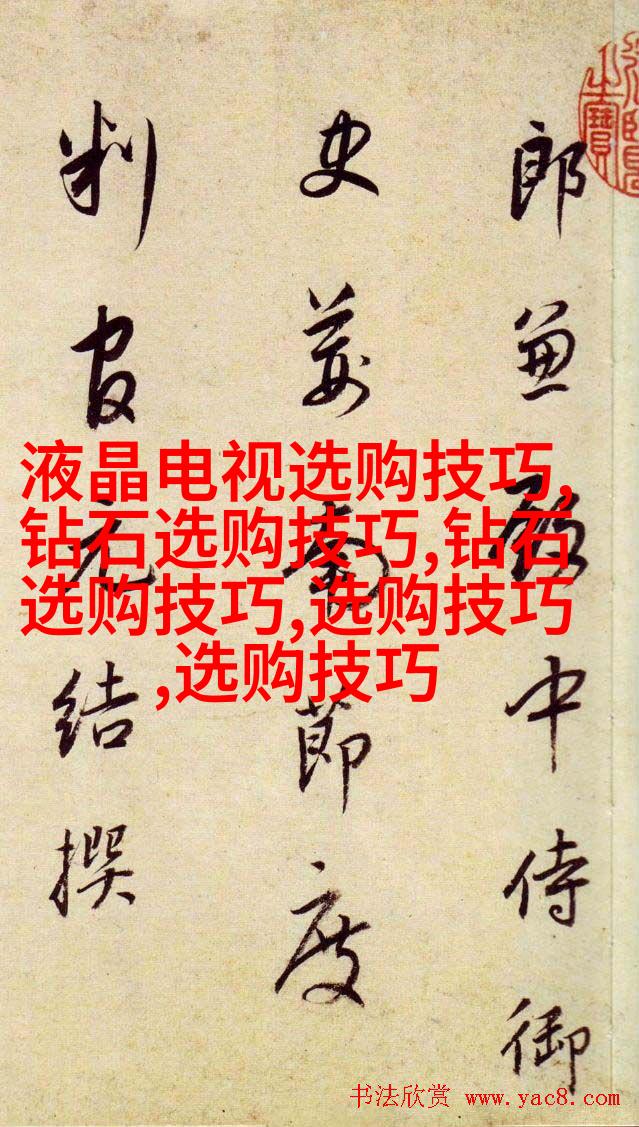 郎兼殿中侍御
史荊南節度
判官元結撰
液晶电视选购技巧,
钻石选购技巧,钻石
选购技巧,选购技巧
,选购技巧
书法欣赏 www.yac8.com